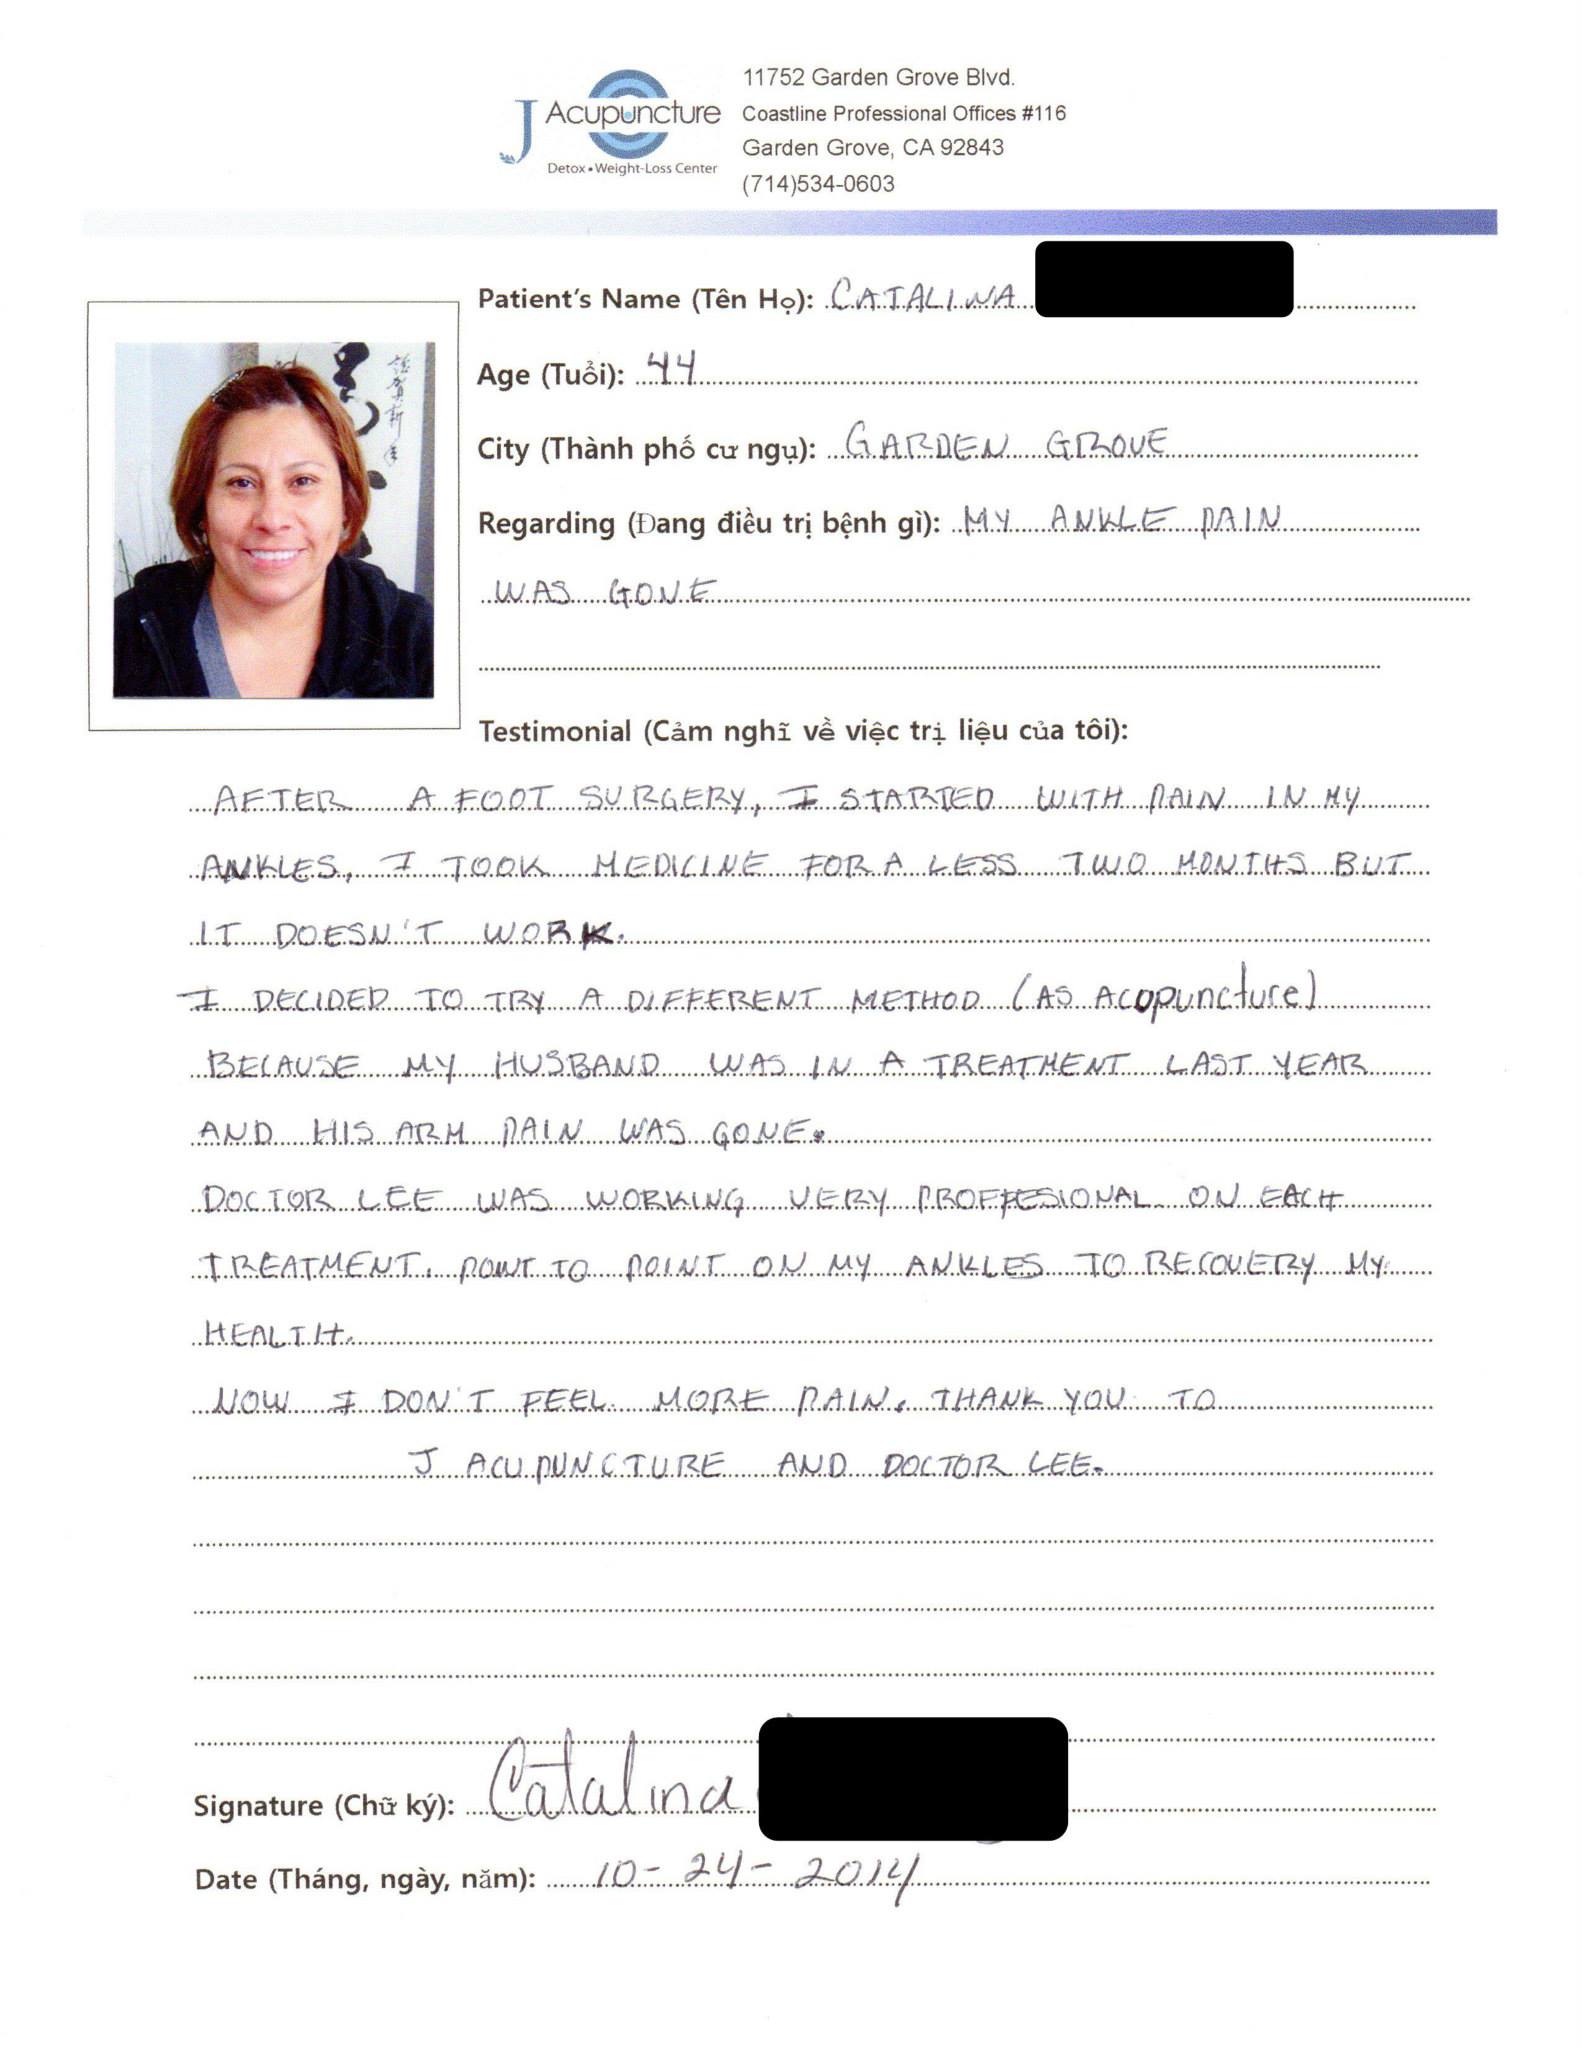 J Acupuncture
Detox • Weight-Loss Center
11752 Garden Grove Blvd.
Coastline Professional Offices #116
Garden Grove, CA 92843
(714)534-0603
Patient's Name (Tên Họ): CATALINA
Age (Tuổi): 44
City (Thành phố cư ngụ): GARDEN GROVE
Regarding (Đang điều trị bệnh gì): MY ANKLE PAIN
WAS GONE
謹賀新年
Testimonial (Cảm nghĩ về việc trị liệu của tôi):
AFTER A FOOT SURGERY, I STARTED WITH PAIN IN MY
ANKLES, I TOOK MEDICINE FOR A LESS TWO MONTHS BUT
IT DOESN'T WORK.
I DECIDED TO TRY A DIFFERENT METHOD (AS Acopuncture)
BECAUSE MY HUSBAND WAS IN A TREATMENT LAST YEAR
AND HIS ARM PAIN WAS GONE.
DOCTOR LEE WAS WORKING VERY PROFFESIONAL ON EACH
TREATMENT. POINT TO POINT ON MY ANKLES TO RECOVERY MY
HEALTH.
NOW I DON'T FEEL MORE PAIN. THANK YOU TO
J ACUPUNCTURE AND DOCTOR LEE.
Signature (Chữ ký): Catalina
Date (Tháng, ngày, năm): 10-24-2014